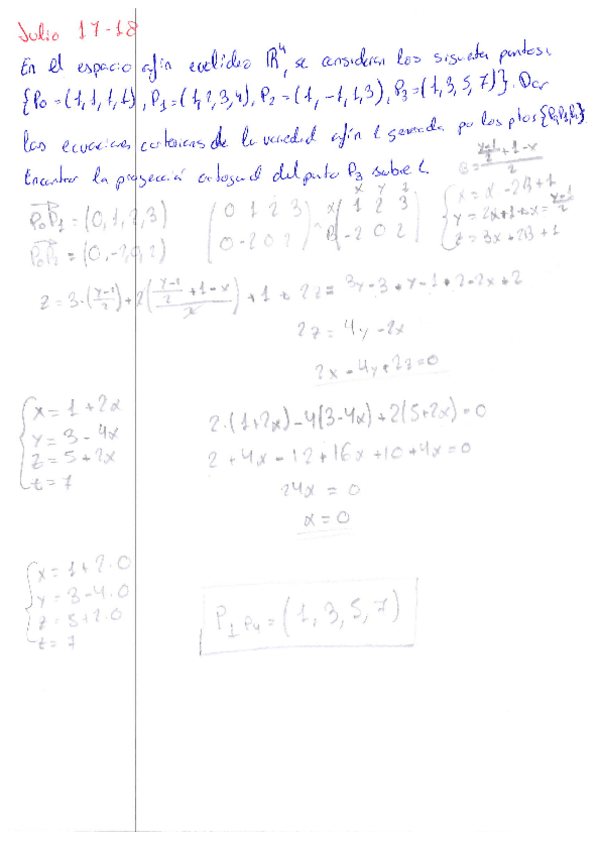 Julio 17-18
En el espacio afín euclídeo ℝ⁴, se consideran los siguientes puntos:
{P₀=(1,1,1,1), P₁=(1,2,3,4), P₂=(1,-1,1,3), P₃=(1,3,5,7)}. Dar
las ecuaciones cartesianas de la variedad afín L generada por los ptos {P₀,P₁,P₂}
Encontrar la proyección ortogonal del punto P₃ sobre L.
B = ((y-1)/2 + 1 - x)/2
P₀P₁ = (0,1,2,3)
P₀P₂ = (0,-2,0,2)
(0 1 2 3
0 -2 0 2) ~
x y z
α(1 2 3
B(-2 0 2)
{x = α - 2B + 1
y = 2α + 1 = α = (y-1)/2
z = 3α + 2B + 1
z = 3·((y-1)/2) + 2(((y-1)/2 + 1 - x)/2) + 1 = 2z = 3y - 3 + y - 1 + 2 - 2x + 2
2z = 4y - 2x
2x - 4y + 2z = 0
{x = 1 + 2α
y = 3 - 4α
z = 5 + 2α
t = 7
2·(1+2α) - 4(3-4α) + 2(5+2α) = 0
2 + 4α - 12 + 16α + 10 + 4α = 0
24α = 0
α = 0
{x = 1 + 2·0
y = 3 - 4·0
z = 5 + 2·0
t = 7
P₁P₄ = (1, 3, 5, 7)